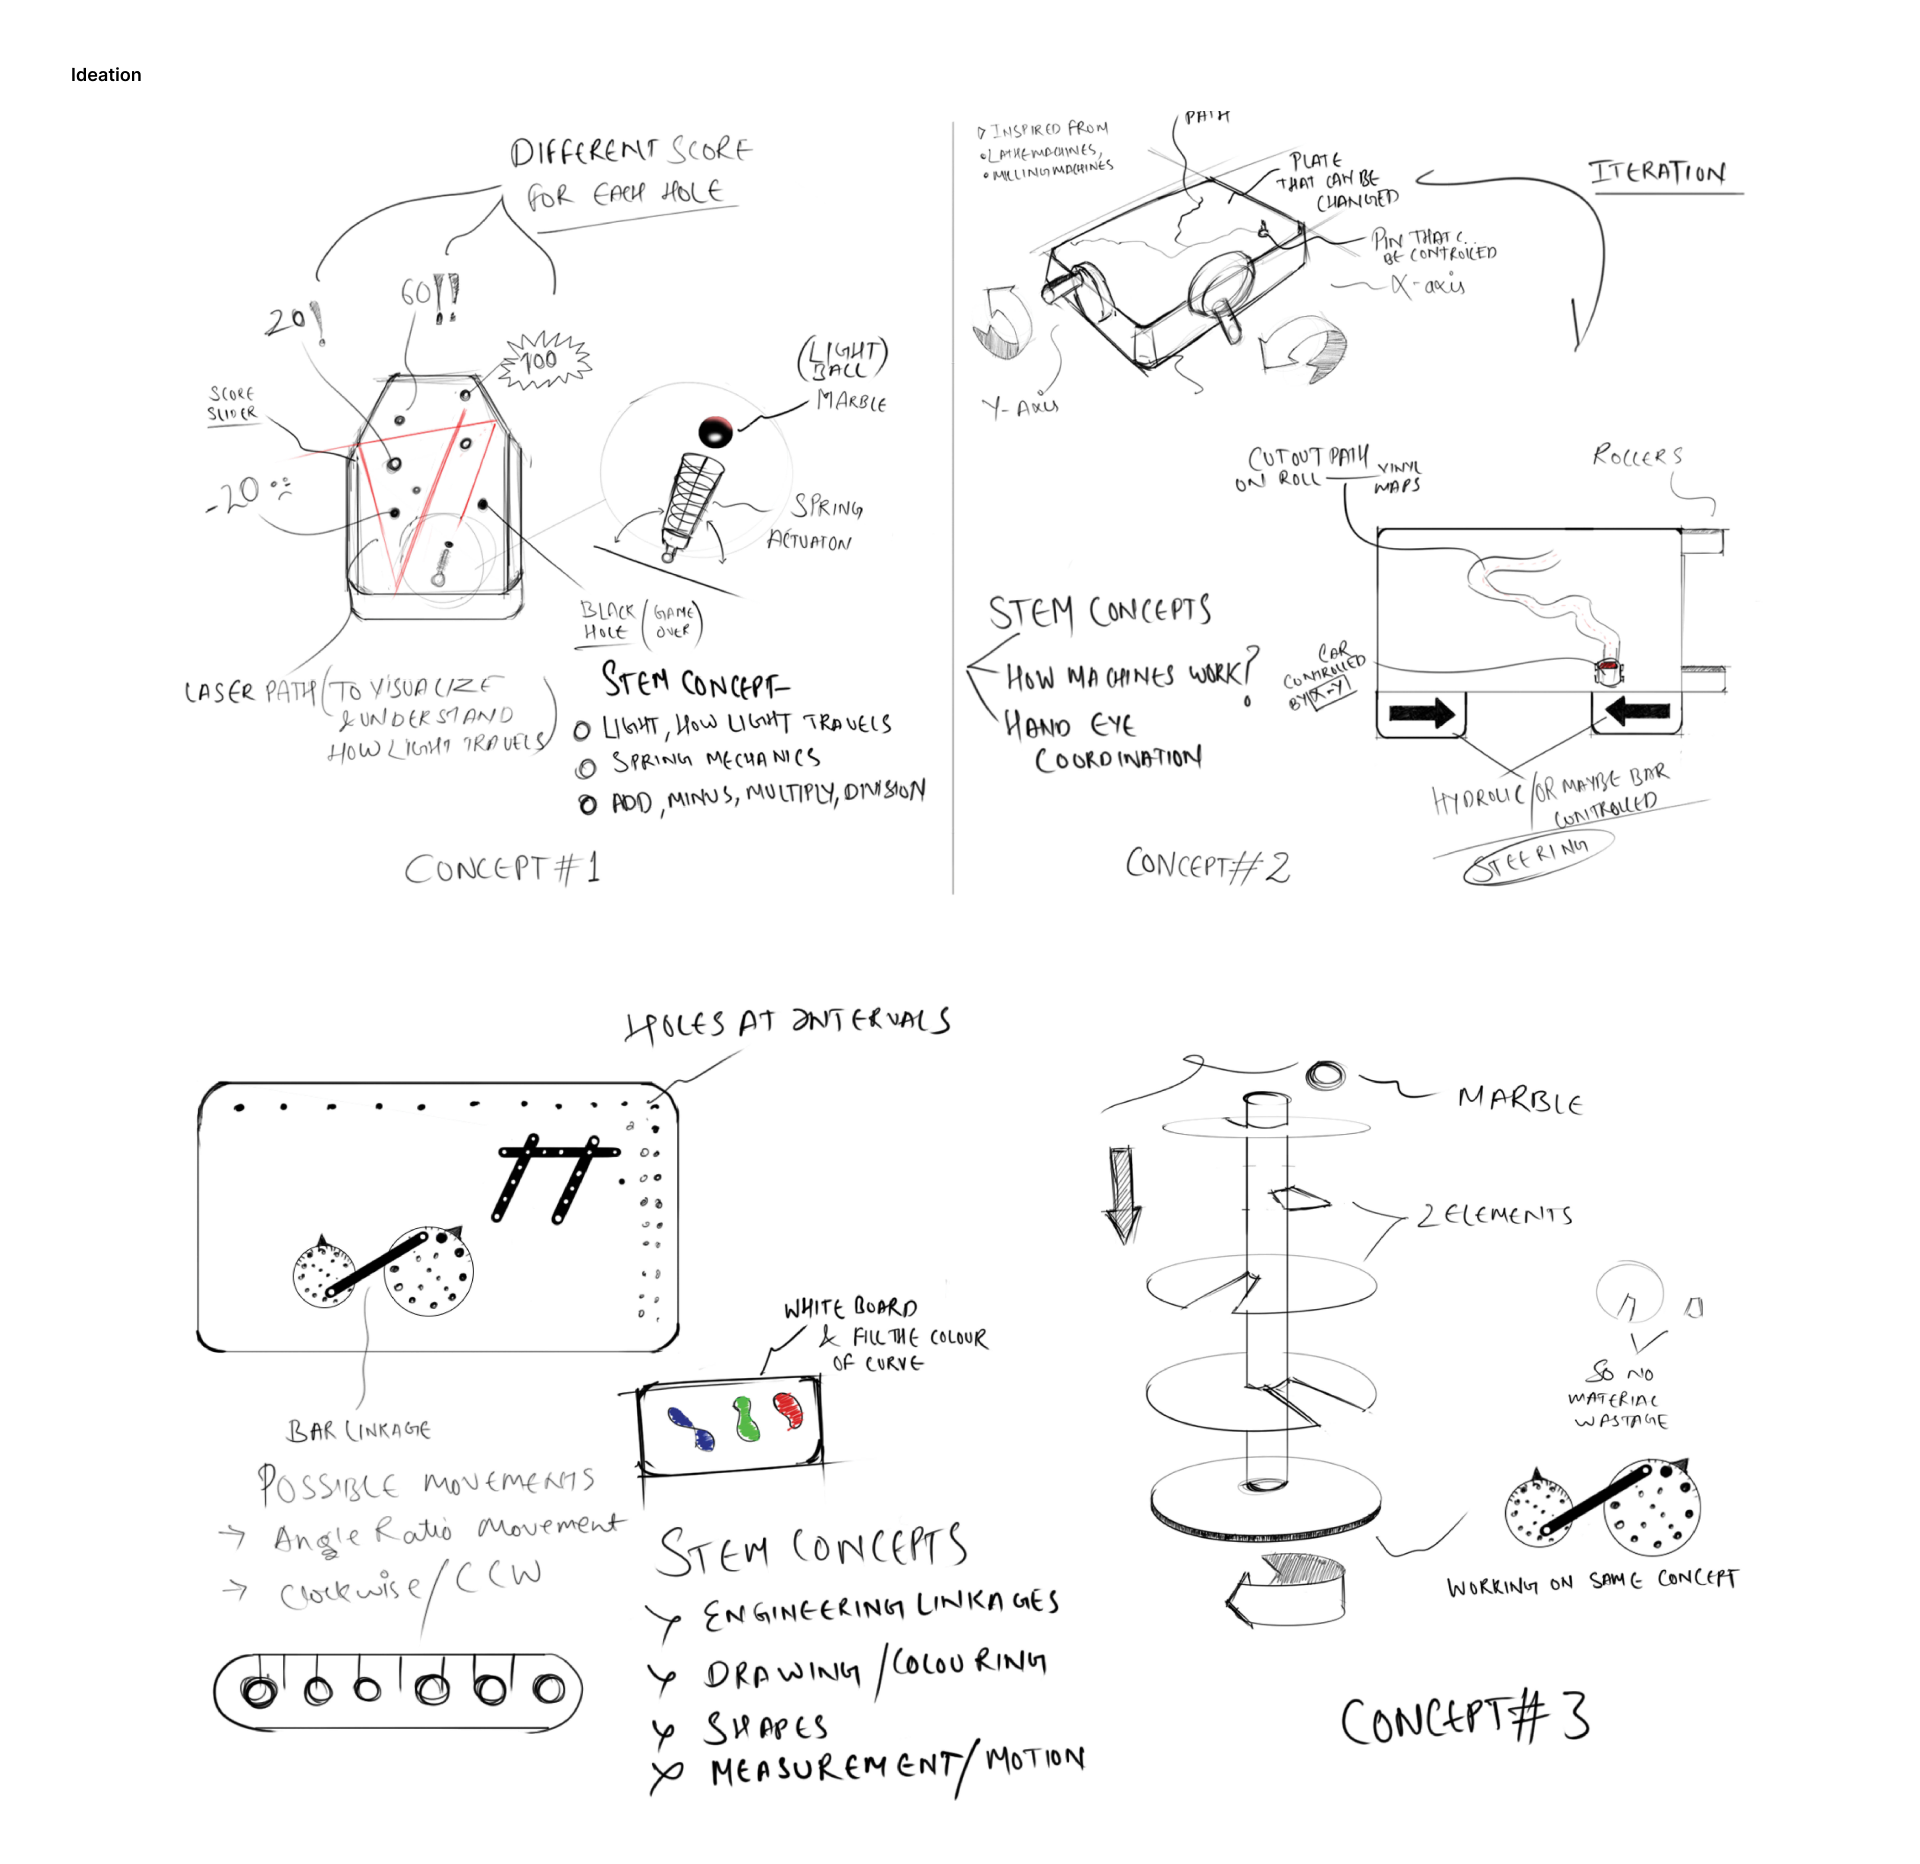 Ideation
DIFFERENT SCORE
FOR EACH HOLE
20!
60!!
100
SCORE
SLIDER
-20
(LIGHT)
BALL
MARBLE
SPRING
ACTUATON
BLACK (GAME
HOLE OVER)
LASER PATH (TO VISUALIZE
& UNDERSTAND
HOW LIGHT TRAVELS)
STEM CONCEPT-
LIGHT, HOW LIGHT TRAVELS
SPRING MECHANICS
ADD, MINUS, MULTIPLY, DIVISION
CONCEPT #1
INSPIRED FROM
• LATHE MACHINES,
• MILLING MACHINES
PATH
PLATE
THAT CAN BE
CHANGED
PIN THAT C..
BE CONTROLLED
X-axis
Y-Axis
ITERATION
CUTOUT PATH
ON ROLL
VINYL
MAPS
ROLLERS
STEM CONCEPTS
HOW MACHINES WORK?
HAND EYE
COORDINATION
CAR
CONTROLLED
BY X-Y
HYDROLIC/OR MAYBE BAR
CONTROLLED
STEERING
CONCEPT #2
HOLES AT INTERVALS
BAR LINKAGE
POSSIBLE MOVEMENTS
→ Angle Ratio Movement
→ Clockwise/CCW
WHITE BOARD
& FILL THE COLOUR
OF CURVE
STEM CONCEPTS
ENGINEERING LINKAGES
DRAWING/COLOURING
SHAPES
MEASUREMENT/MOTION
MARBLE
2 ELEMENTS
SO NO
MATERIAL
WASTAGE
WORKING ON SAME CONCEPT
CONCEPT #3